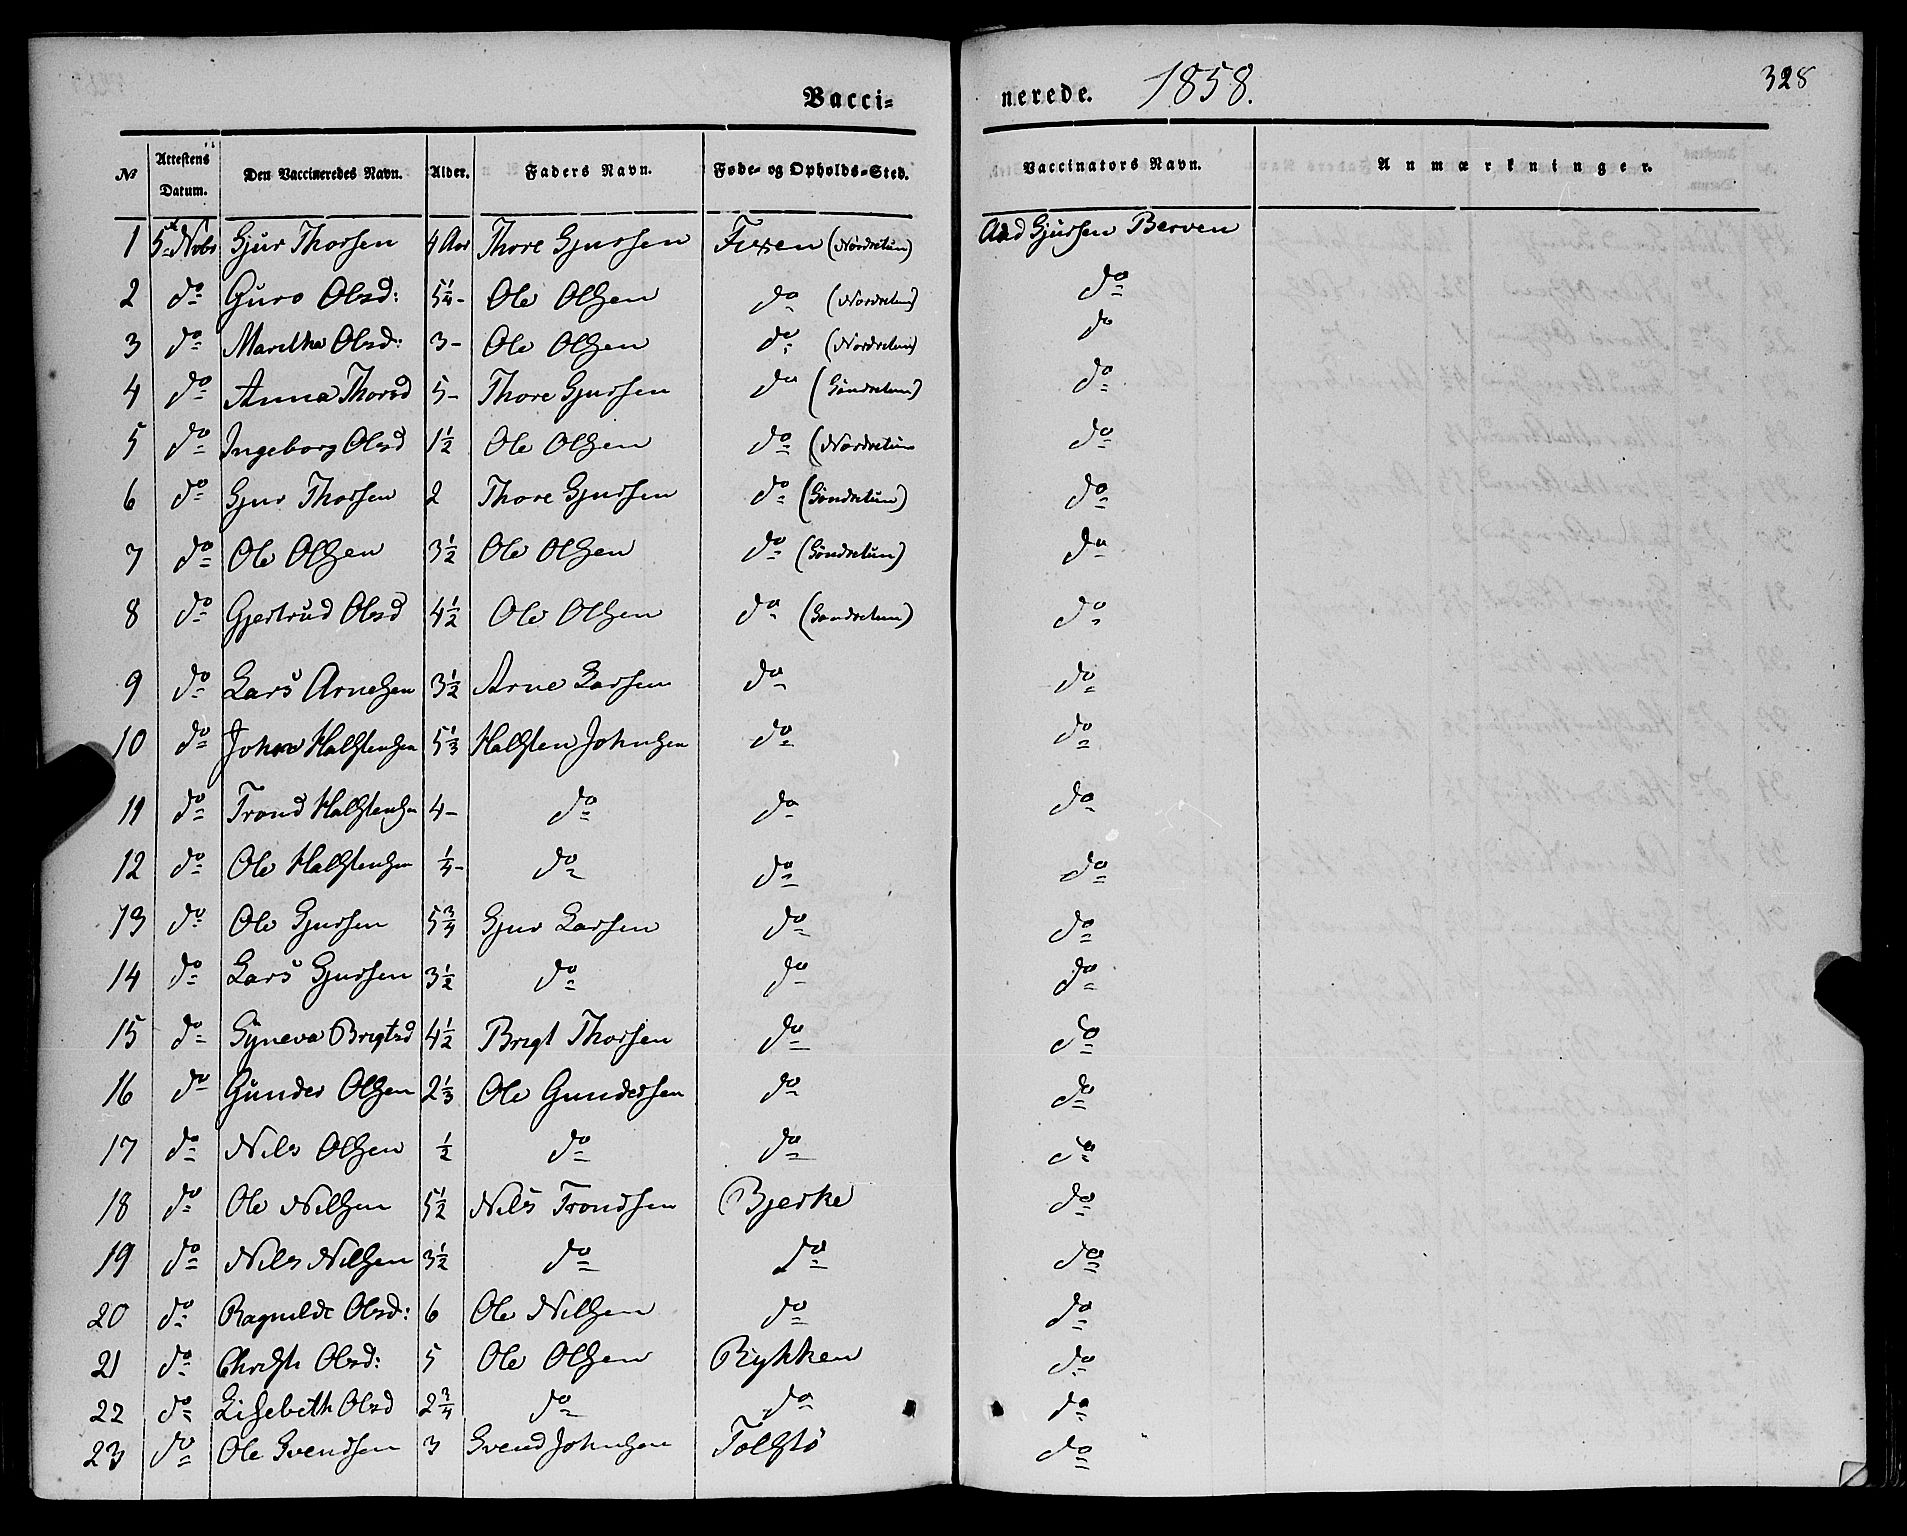 328
Vacci= nerede. 1858.
No Attestens Datum. Den Vaccineredes Navn. Alder. Faders Navn. Føde- og Opholds-Sted. Vaccinators Navn. Anmærkninger.
1 5te Novbr Gjur Thorsen 4 Aar Thore Gjursen Fixen (Nordretun) Aad Gjursen Berven
2 do Guro Olsd: 5 1/4 - Ole Olsen do (Nordretun) do
3 do Maritha Olsd: 3 - Ole Olsen do (Nordretun) do
4 do Anna Thorsd 5 - Thore Gjursen do (Søndretun) do
5 do Ingeborg Olsd 1 1/2 Ole Olsen do (Nordretun do
6 do Gjur Thorsen 2 Thore Gjursen do (Søndretun) do
7 do Ole Olsen 3 1/2 Ole Olsen do (Søndretun) do
8 do Gjertrud Olsd 4 1/2 Ole Olsen do (Søndretun) do
9 do Lars Arnesen 3 1/2 Arne Larsen do do
10 do John Halstensen 5 1/3 Halsten Johnsen do do
11 do Trond Halstensen 4 - do do do
12 do Ole Halstensen 1/4 - do do do
13 do Ole Gjursen 5 3/4 Gjur Larsen do do
14 do Lars Gjursen 3 1/2 do do do
15 do Syneva Brigtsd 4 1/2 Brigt Thorsen do do
16 do Gunder Olsen 2 1/3 Ole Gundersen do do
17 do Nils Olsen 1/2 do do do
18 do Ole Nilsen 5 1/2 Nils Trondsen Bjerke do
19 do Nils Nilsen 3 1/2 do do do
20 do Ragnilde Olsd: 6 Ole Nilsen do do
21 do Christi Olsd: 5 Ole Olsen Rykken do
22 do Lisebeth Olsd 2 3/4 do do do
23 do Ole Svendsen 3 Svend Johnsen Tolstø do